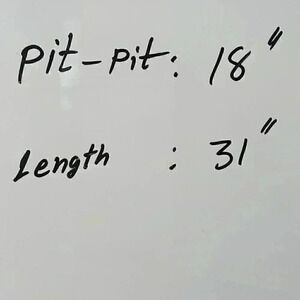 Pit-Pit: 18"
Length : 31"